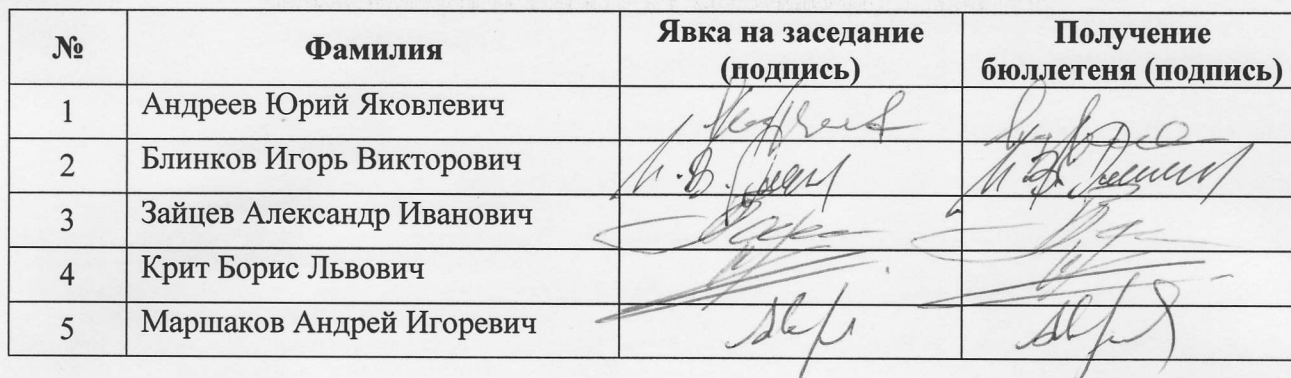 № Фамилия Явка на заседание (подпись) Получение бюллетеня (подпись)
1 Андреев Юрий Яковлевич
2 Блинков Игорь Викторович
3 Зайцев Александр Иванович
4 Крит Борис Львович
5 Маршаков Андрей Игоревич